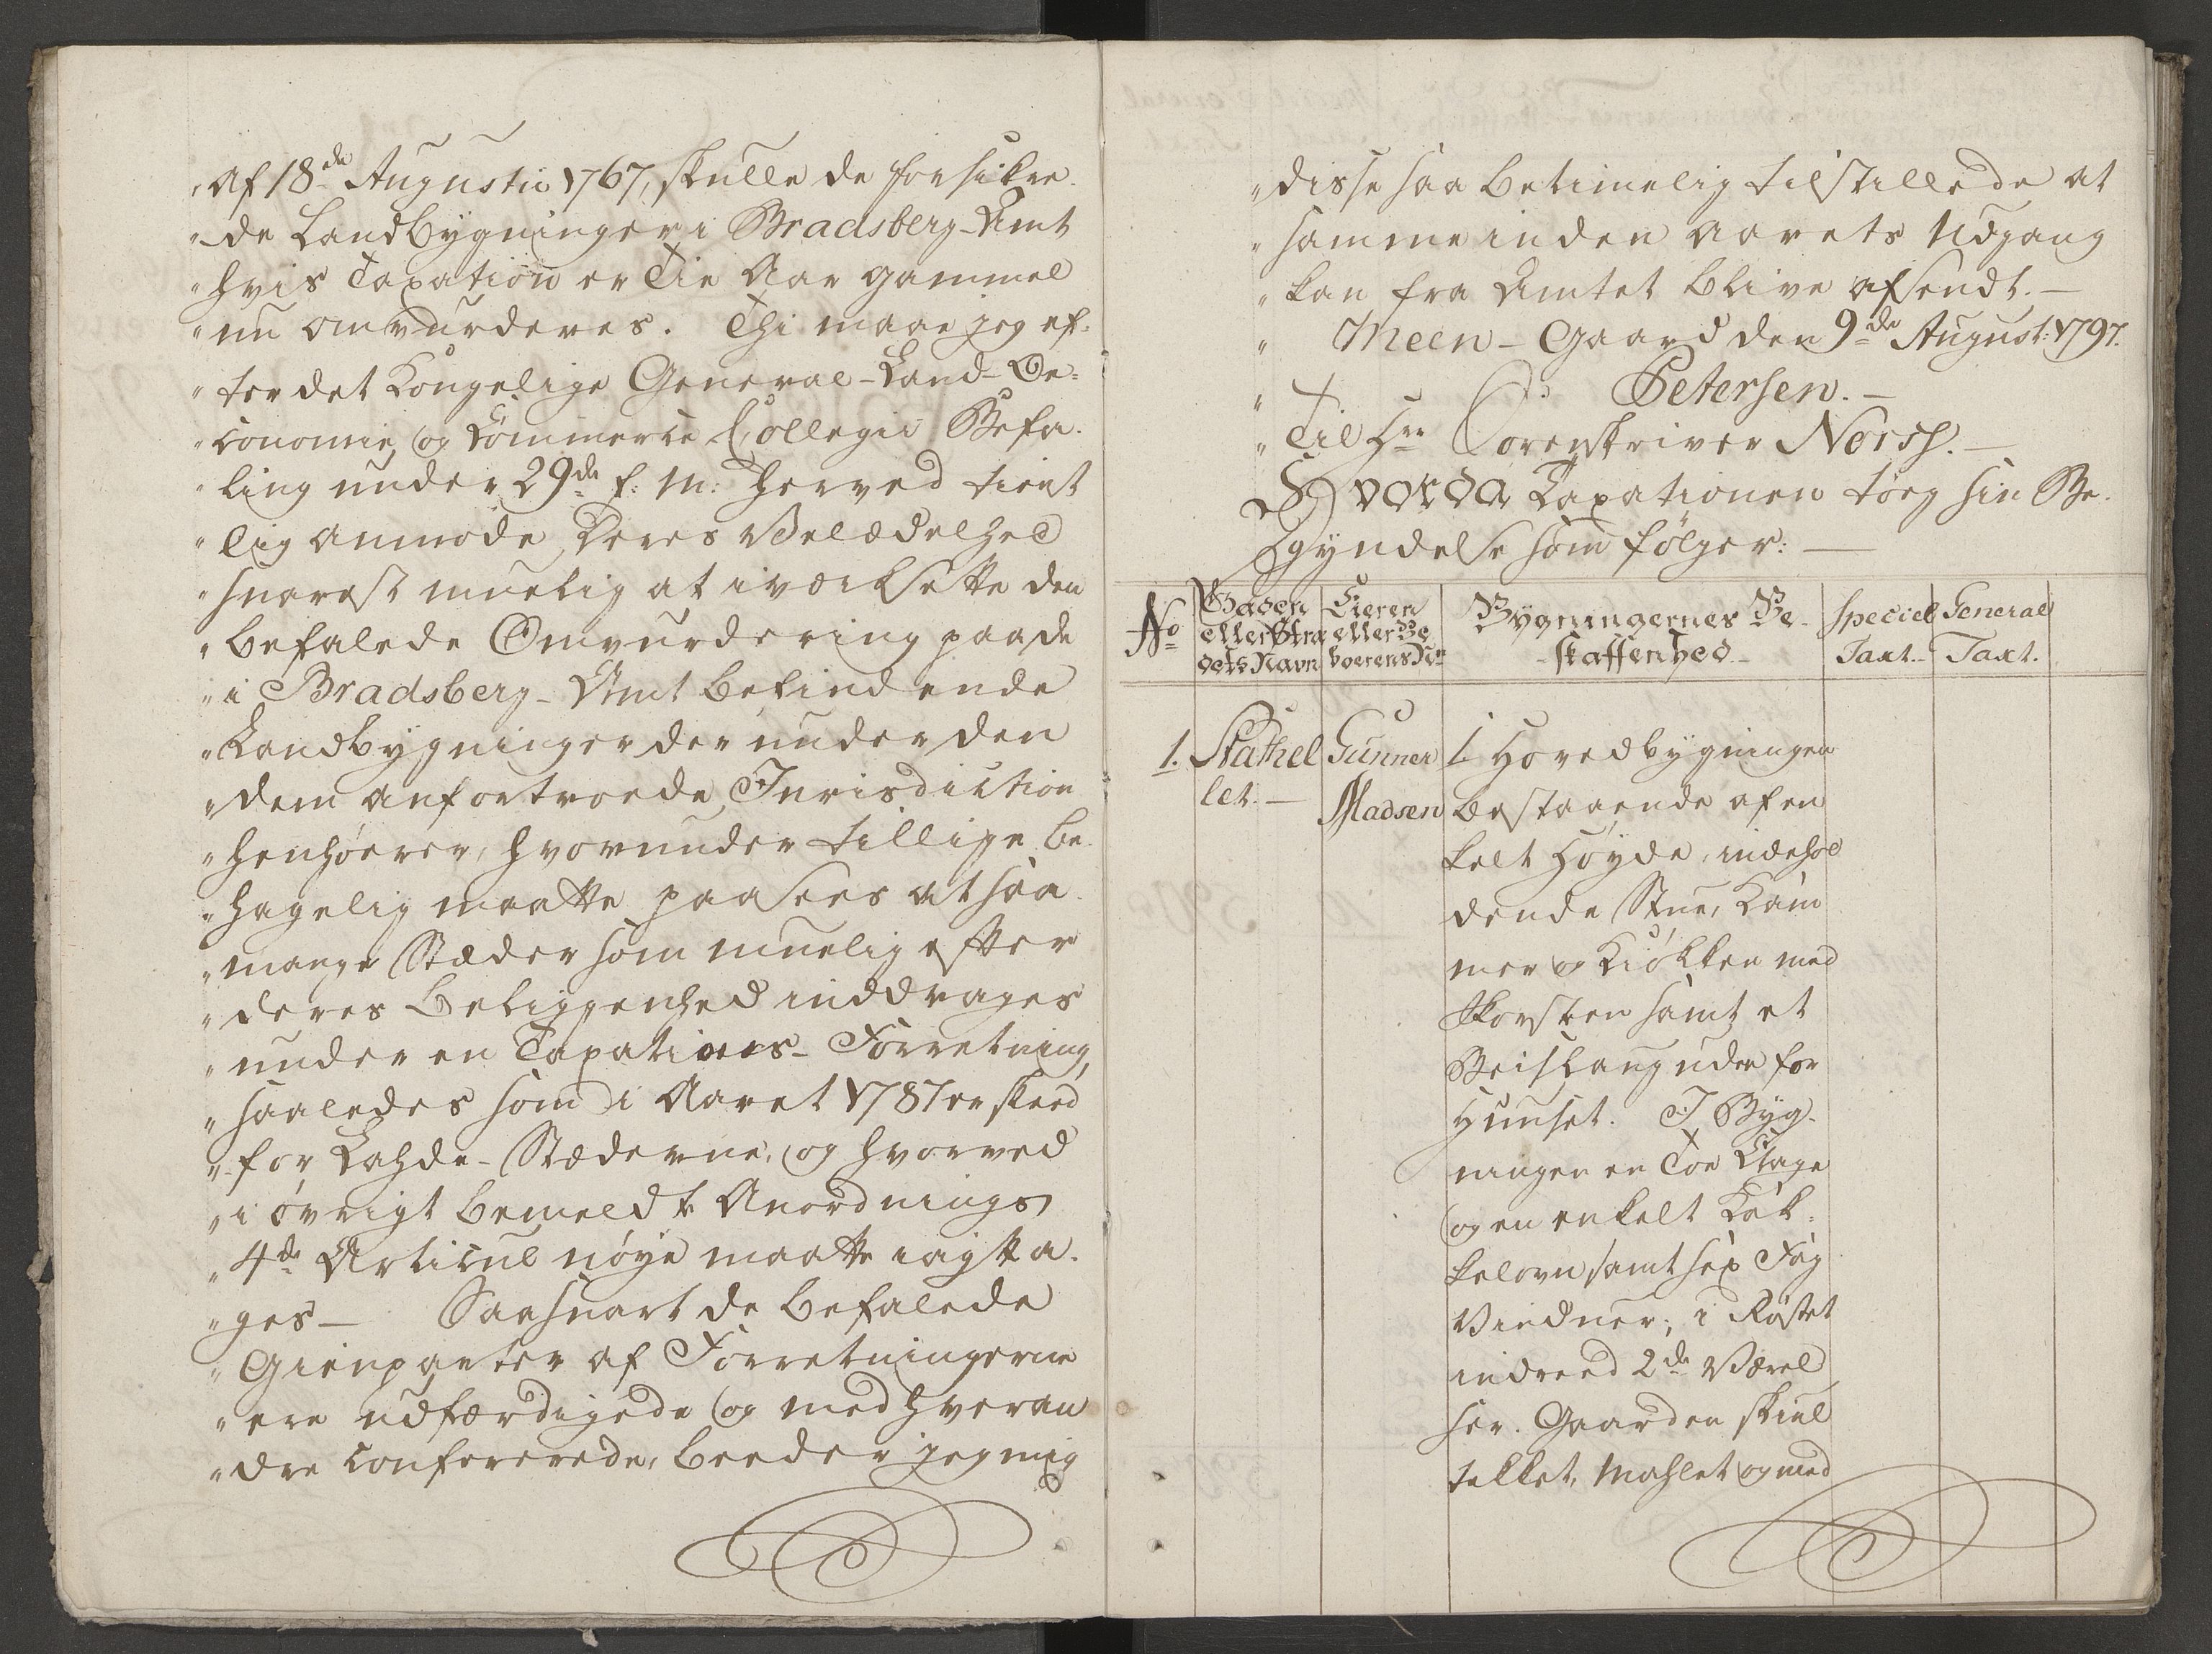 "af 18de Augustii 1767, skulle de forsikre-
"de Landbygninger i Bradsberg-Amt
"hvis Taxation er Tie Aar gammel
"nu omvurderes. Thi maae jeg ef-
"ter det Kongelige General-Land-Oe-
"conomie og Commerce Collegii Befa-
"ling under 29de f: M: herved tient
"lig anmode Deres Velædelhed
"snarest muelig at iværksætte den
"befalede Omvurdering paa de
"i Bradsberg-Amt befindende
"Landbygninger der under den
"dem anfortroede Jurisdiction
"henhøerer, hvorunder tillige be-
"hagelig maatte paasees at saa
"mange Stæder som muelig efter
"deres Beliggenhed inddrages
"under en Taxations-Forretning,
"saaledes som i Aaret 1787 er skeed
"for Lahde-Stæderne, og hvorved
"i øvrigt bemeldte Anordnings
"4de Articul nøye maatte iagtta-
"ges — Saasnart de befalede
"Gienparter af Forretningerne
"ere udfærdigede og med hveran
"dre confererede, beeder jeg mig
"disse saa betimelig tilstillede at
"samme inden Aarets Udgang
"kan fra Amtet blive afsendt. —
" Meen-Gaard den 9de August: 1797.
" Petersen. —
"Til Hrr Sorenskriver Norss. —
Hvorda Taxationen toeg sin Be-
gyndelse som følger: —
No
Gaden eller Stra dets Navn
Eieren eller Be boerens Nn
Bygningernes Be- skaffenhed
Speciel Taxt.
General Taxt.
1. Stathel Gunner 1 Hovedbygningen
let. — Madsen bestaaende af en
kelt Høyde, indehol
dende Stue, Kam
mer og Kiøkken med
Skorsteen samt et
Beislaug uden for
Huuset. I Byg-
ningen en Toe Etage
og en enkelt Kak-
kelovn samt sex Fag
Vinduer; i Røstet
indreed 2de Værel
ser. Gaarden skiul
tekket, Mahlet og med